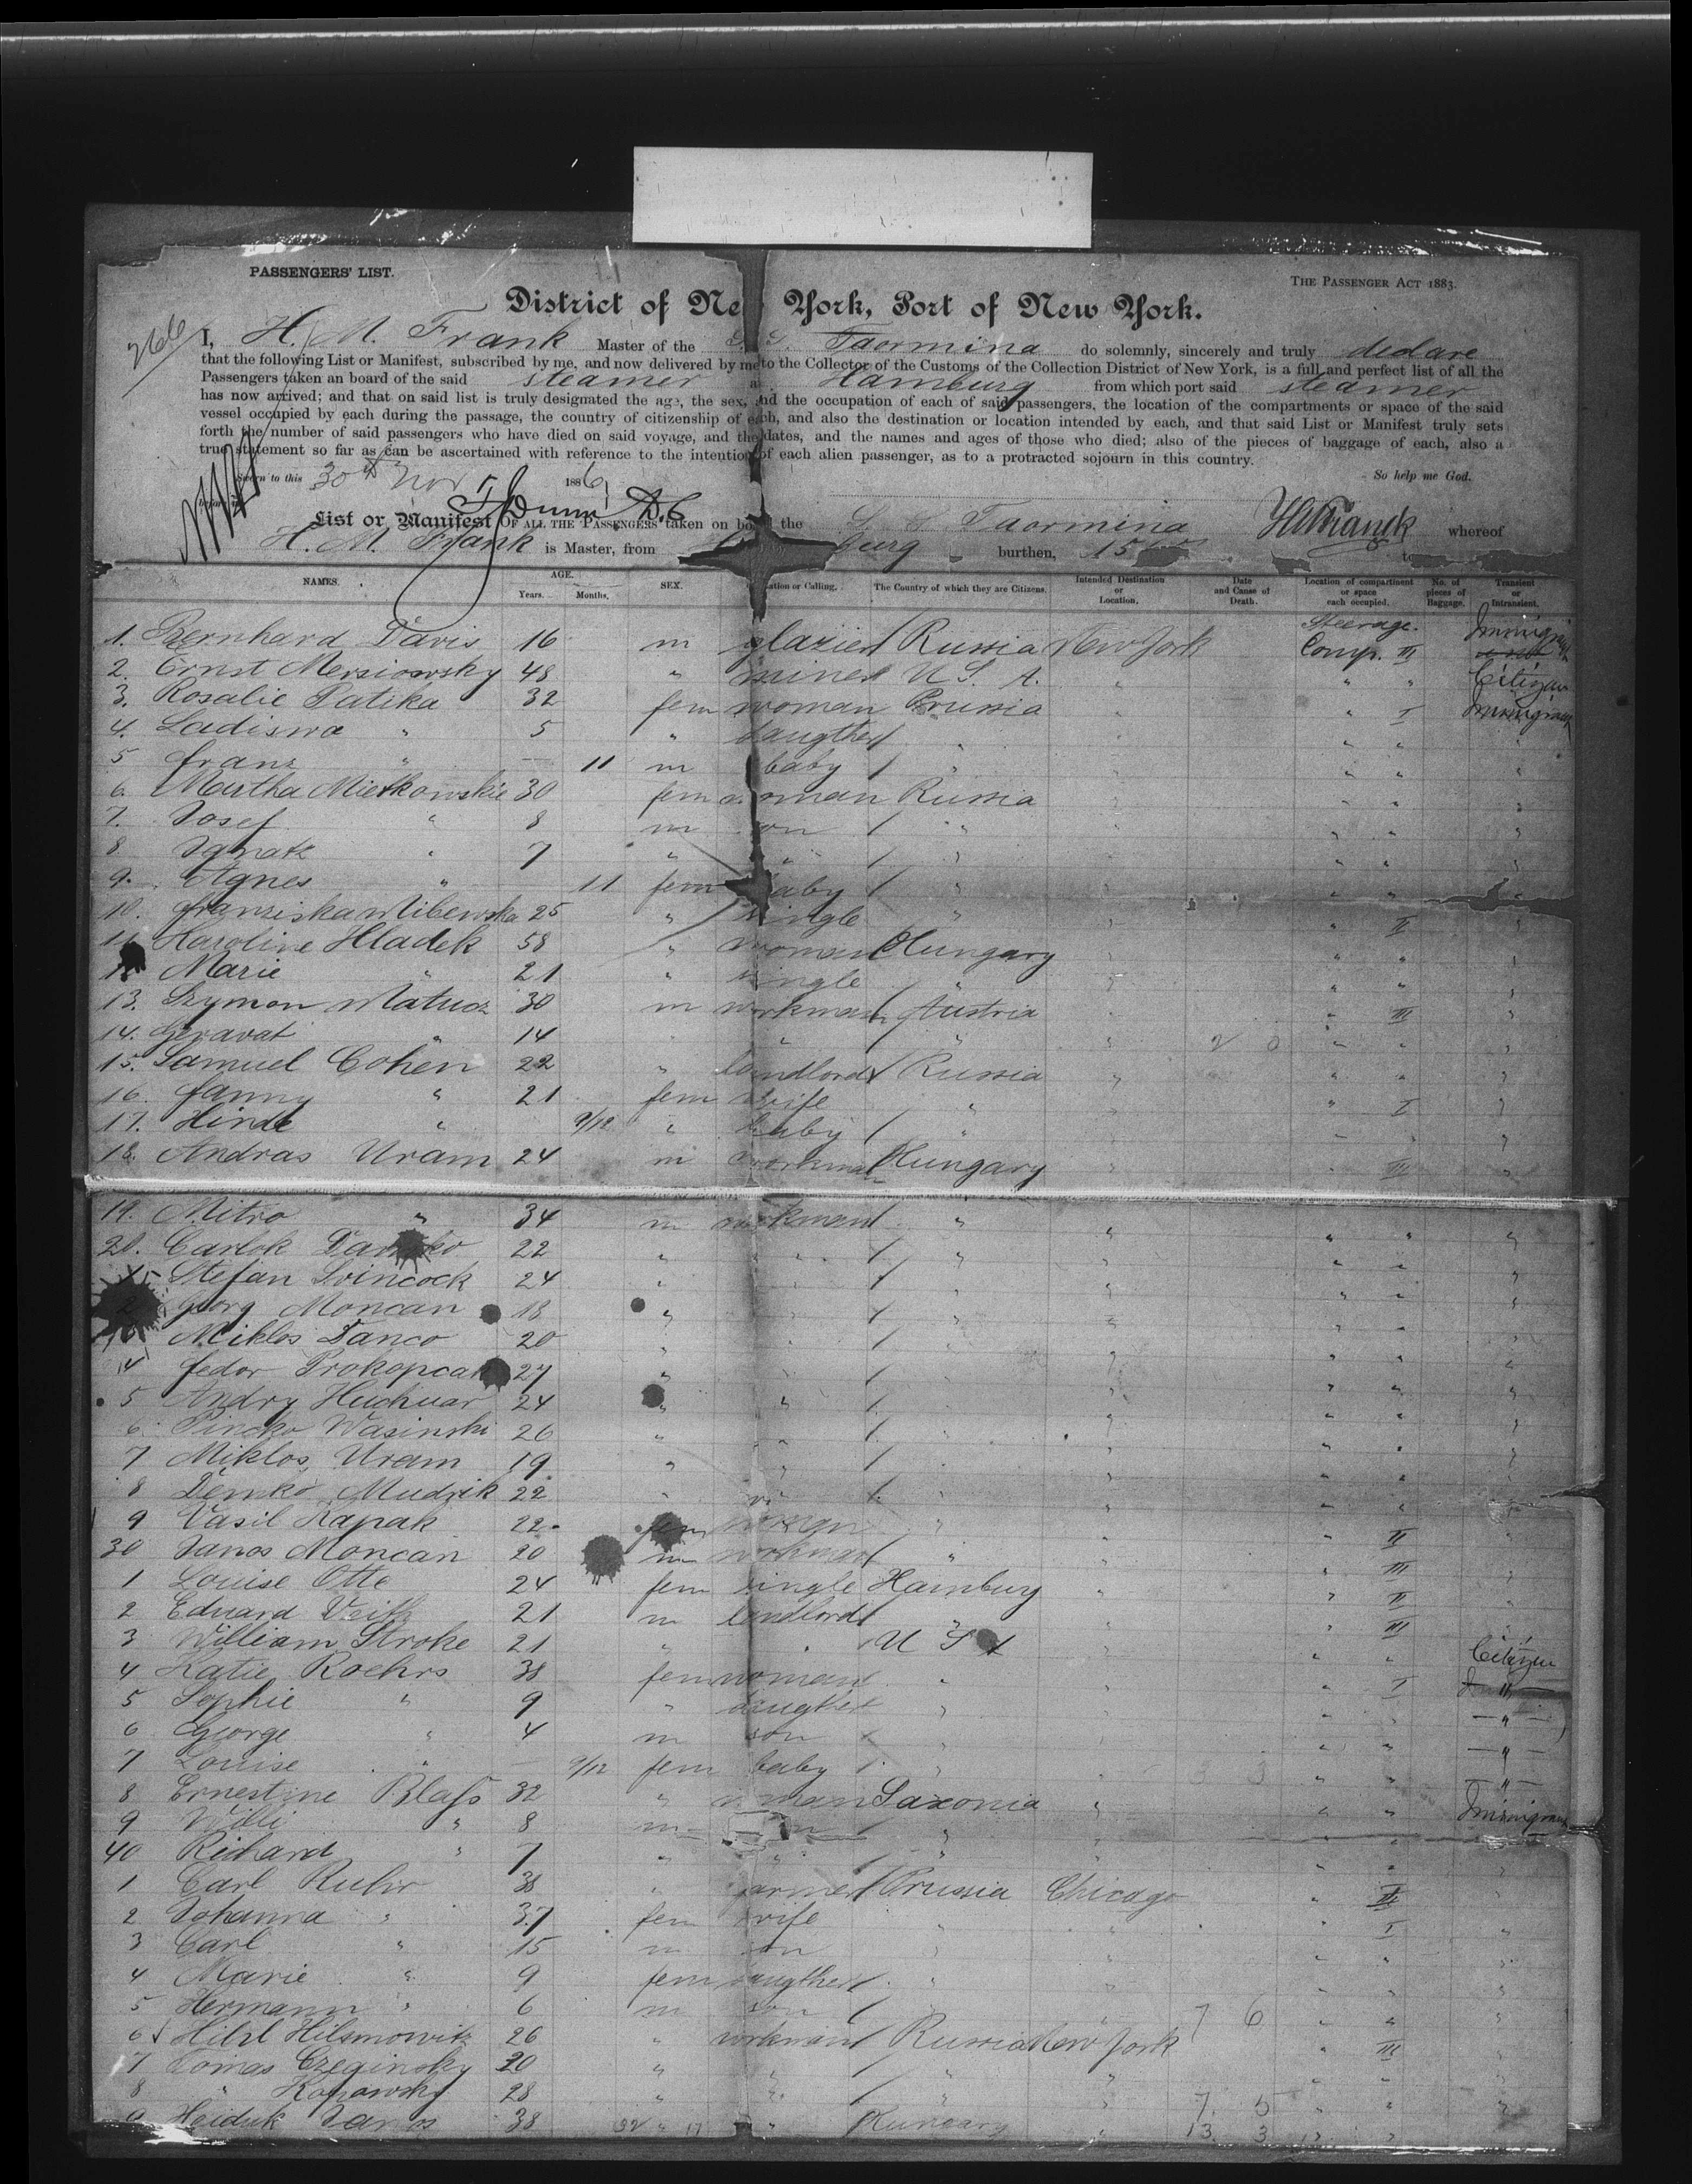 PASSENGERS' LIST.
THE PASSENGER ACT 1883.
District of New York, Port of New York.
266
I, H. M. Frank Master of the S. S. Taormina do solemnly, sincerely and truly declare
that the following List or Manifest, subscribed by me, and now delivered by me to the Collector of the Customs of the Collection District of New York, is a full and perfect list of all the
Passengers taken an board of the said steamer at Hamburg from which port said steamer
has now arrived; and that on said list is truly designated the age, the sex, and the occupation of each of said passengers, the location of the compartments or space of the said
vessel occupied by each during the passage, the country of citizenship of each, and also the destination or location intended by each, and that said List or Manifest truly sets
forth the number of said passengers who have died on said voyage, and the dates, and the names and ages of those who died; also of the pieces of baggage of each, also a
true statement so far as can be ascertained with reference to the intention of each alien passenger, as to a protracted sojourn in this country.
Sworn to this 30th Nov 1886 So help me God.
Dunn D.C
List or Manifest OF ALL THE PASSENGERS taken on board the S. S. Taormina whereof
H. M. Frank is Master, from burg burthen, 15
NAMES. AGE. Years. Months. SEX. ation or Calling. The Country of which they are Citizens. Intended Destination or Location. Date and Cause of Death. Location of compartment or space each occupied. No. of pieces of Baggage. Transient or Intransient.
1. Bernhard Davis 16 m glazier / Russia New York Steerage. Comp. III Immigrant
2. Ernst Mersiowsky 48 " miner U. S. A. " " " Citizen
3. Rosalie Patika 32 fem woman Prussia " " I Immigrant
4. Ladiswa " 5 " daugther / " " " "
5 Franz " — 11 m baby / " " " "
6 Martha Mietkowskie 30 fem woman Russia " " "
7. Josef " 8 m son / " " " "
8. Ignatz " 7 " " / " " " "
9. Agnes " 11 fem baby / " " " "
10. Franziska Milewska 25 " single " " " II "
11. Karoline Hladek 58 " woman Hungary " " " "
12 Marie " 21 " single " " " "
13. Szymon Matusz 30 m workman / Austria " " III "
14. " 14 " " / " " 2 0 " " "
15. Samuel Cohen 22 " landlord / Russia " " " "
16. Fanny " 21 fem wife " " " I "
17. Hinde " 9/12 " baby / " " "
18. Andras Uram 24 m workman / Hungary " " III "
19. Mitro " 34 m workman / " " " " "
20. Carlok 22 " " / " " " "
Stefan Svincock 24 " / " " " " "
2 Georg Moncan 18 " / " " " "
Miklos Danco 20 " / " " " "
4 Fedor Prokopcak 27 " / " " " "
5 Andry Huchuar 24 " " / " " " "
6 Pincko Wasinski 26 " " / " " " "
7 Miklos Uram 19 " " / " " " "
8 Demko Mudrik 22 " " / " " "
9 Vasil Kapak 22 fem woman " " II
30 Janos Moncan 20 m workman / " " " III "
1 Louise Otte 24 fem single Hamburg " " II
2 Eduard Veith 21 m landlord / " " III "
3 William Stroke 21 " " U S A " " " Citizen
4 Katie Roehrs 38 fem woman " " " I "
5 Sophie " 9 " daugther " " " " "
6 George " 4 m son / " " " " "
7 Louise " — 9/12 fem baby / " " 3 3 " " "
8 Ernestine Blass 32 " woman Saxonia " " " Immigrant
9 Willi " 8 m / " " " "
40 Richard " 7 " " / " " " "
1 Carl Ruhr 38 " farmer / Prussia Chicago " III "
2 Johanna " 37 fem wife " " " I "
3 Carl " 15 m son " " " " "
4 Marie " 9 fem daugther / " " " "
5 Hermann " 6 m son / " " 7 6 " " "
6 Hilsmowitz 26 " workman / Russia New York " III "
7 Tomas Czeginsky 20 " " / " " " " "
8 " Kopowsky 28 " " / " " 7. 5 " " "
9 Heiduk Janos 38 " " / Hungary " 13. 3 " "